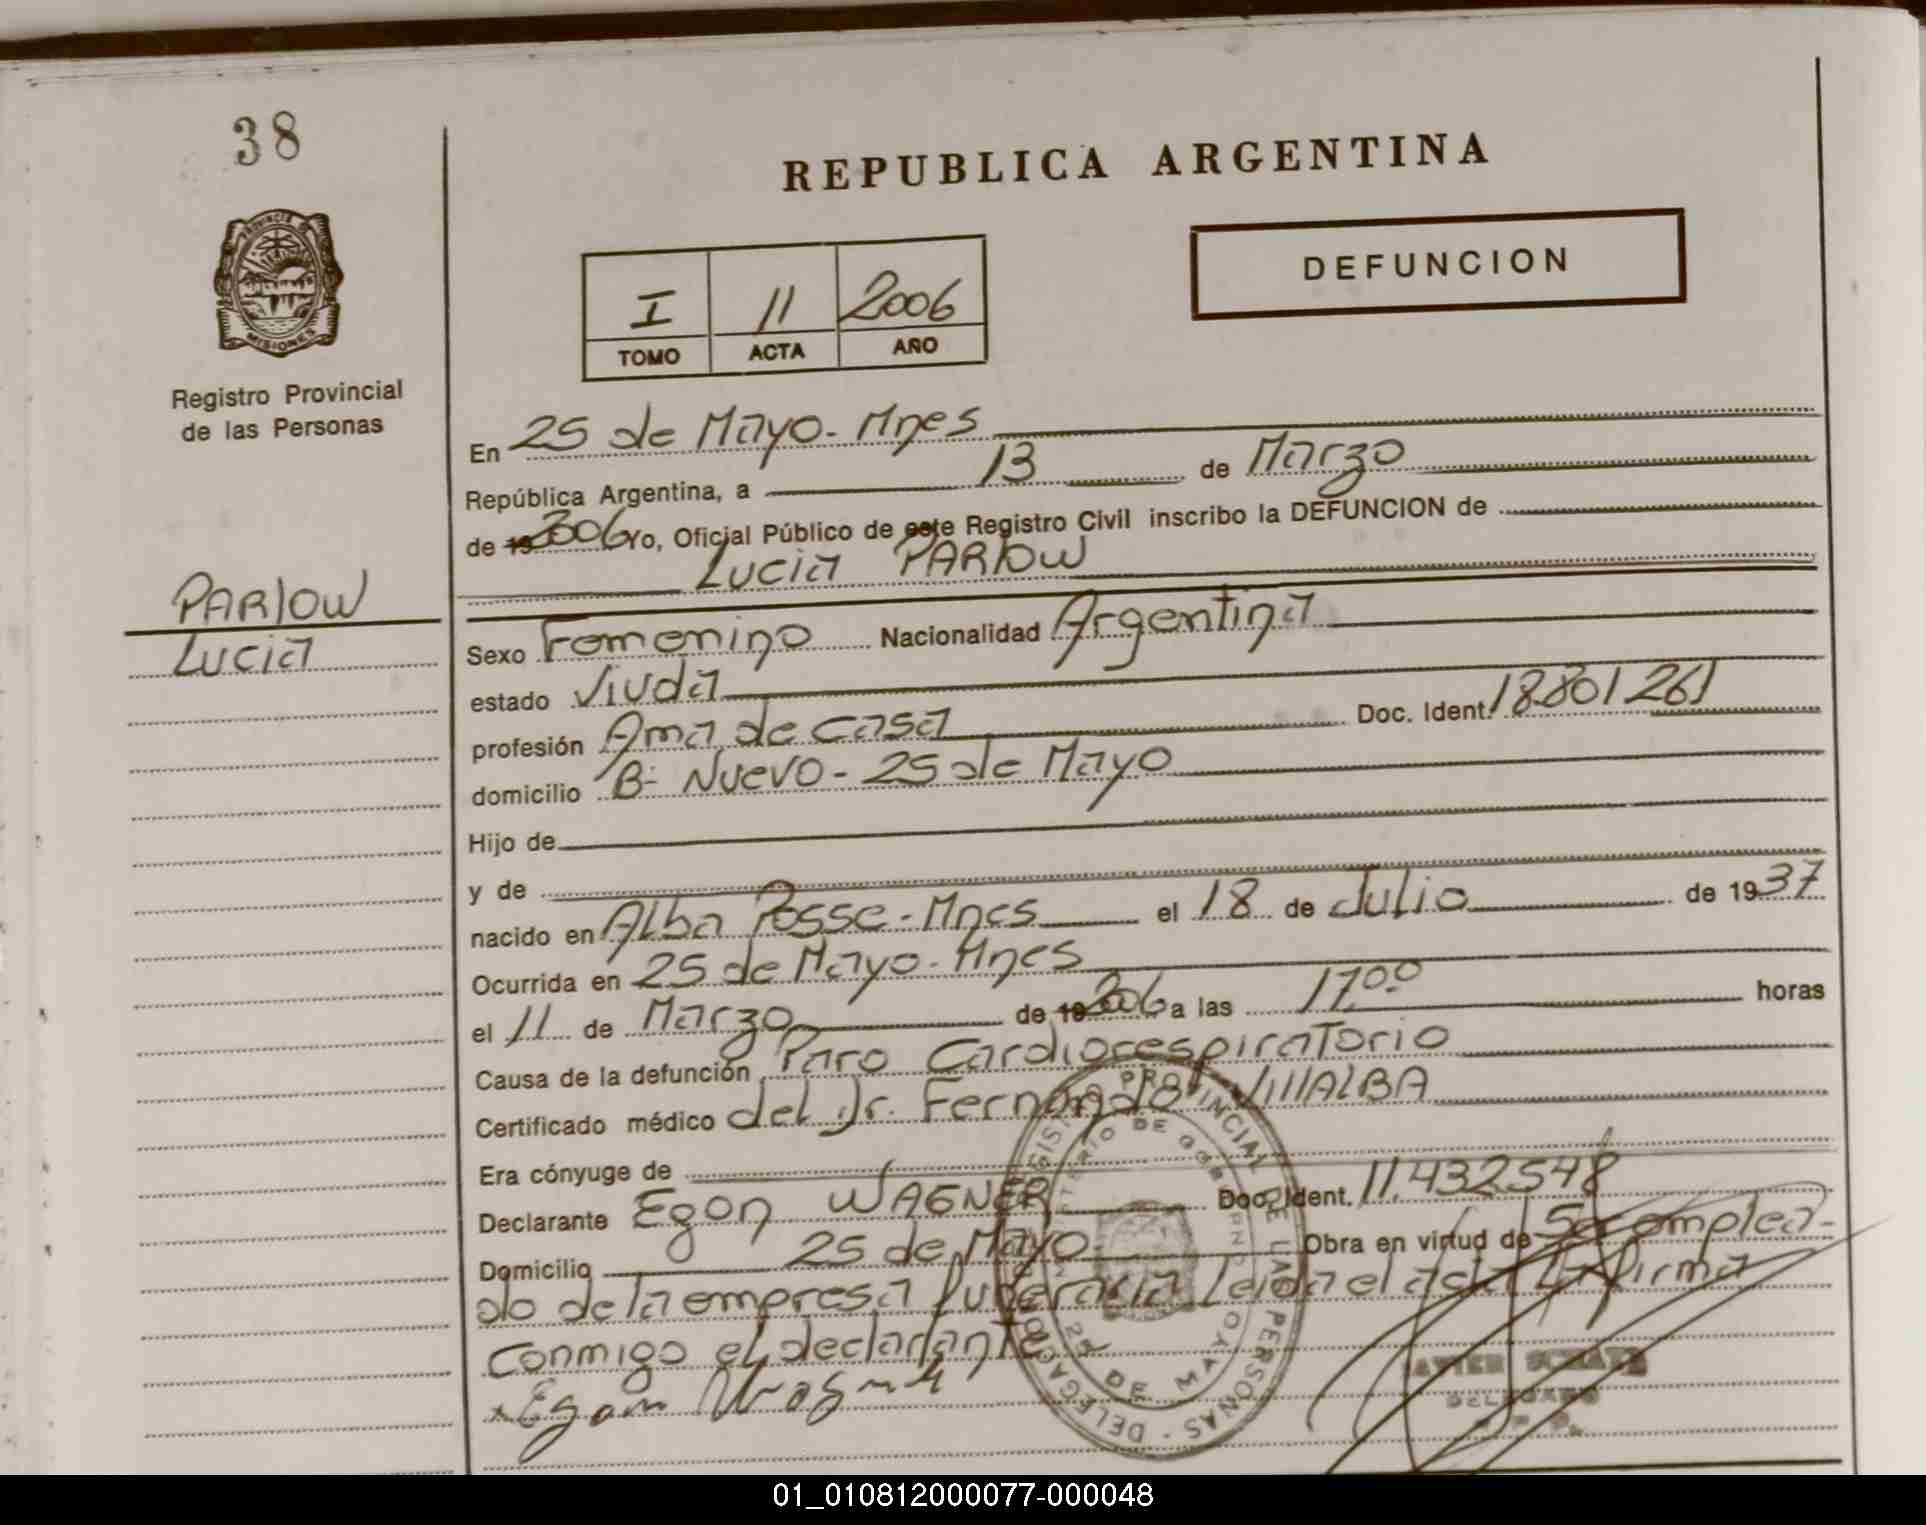 38
REPUBLICA ARGENTINA
DEFUNCION
PROVINCIA DE
MISIONES
Registro Provincial
de las Personas
I 11 2006
TOMO ACTA AÑO
PARLOW
Lucia
En 25 de Mayo - Mnes
República Argentina, a 13 de Marzo
de 19 2006 Yo, Oficial Público de este Registro Civil inscribo la DEFUNCION de
Lucia PARLOW
Sexo Femenino Nacionalidad Argentina
estado Viuda
profesión Ama de casa Doc. Ident. 18801261
domicilio B: Nuevo - 25 de Mayo
Hijo de
y de
nacido en Alba Posse - Mnes el 18 de Julio de 1937
Ocurrida en 25 de Mayo - Mnes
el 11 de Marzo de 19 2006 a las 17.00 horas
Causa de la defunción Paro Cardiorespiratorio
Certificado médico del Dr. Fernando VillALBA
Era cónyuge de
Declarante Egon WAGNER Doc. Ident. 11.432.548
Domicilio 25 de Mayo Obra en virtud de Ser emplea-
do de la empresa funeraria Leida el acta La firma
conmigo el declarante
Egon Wagner
REGISTRO PROVINCIAL DE LAS PERSONAS - DELEGACION
MINISTERIO DE GOBIERNO
25 DE MAYO
DELEGADO
01_010812000077-000048